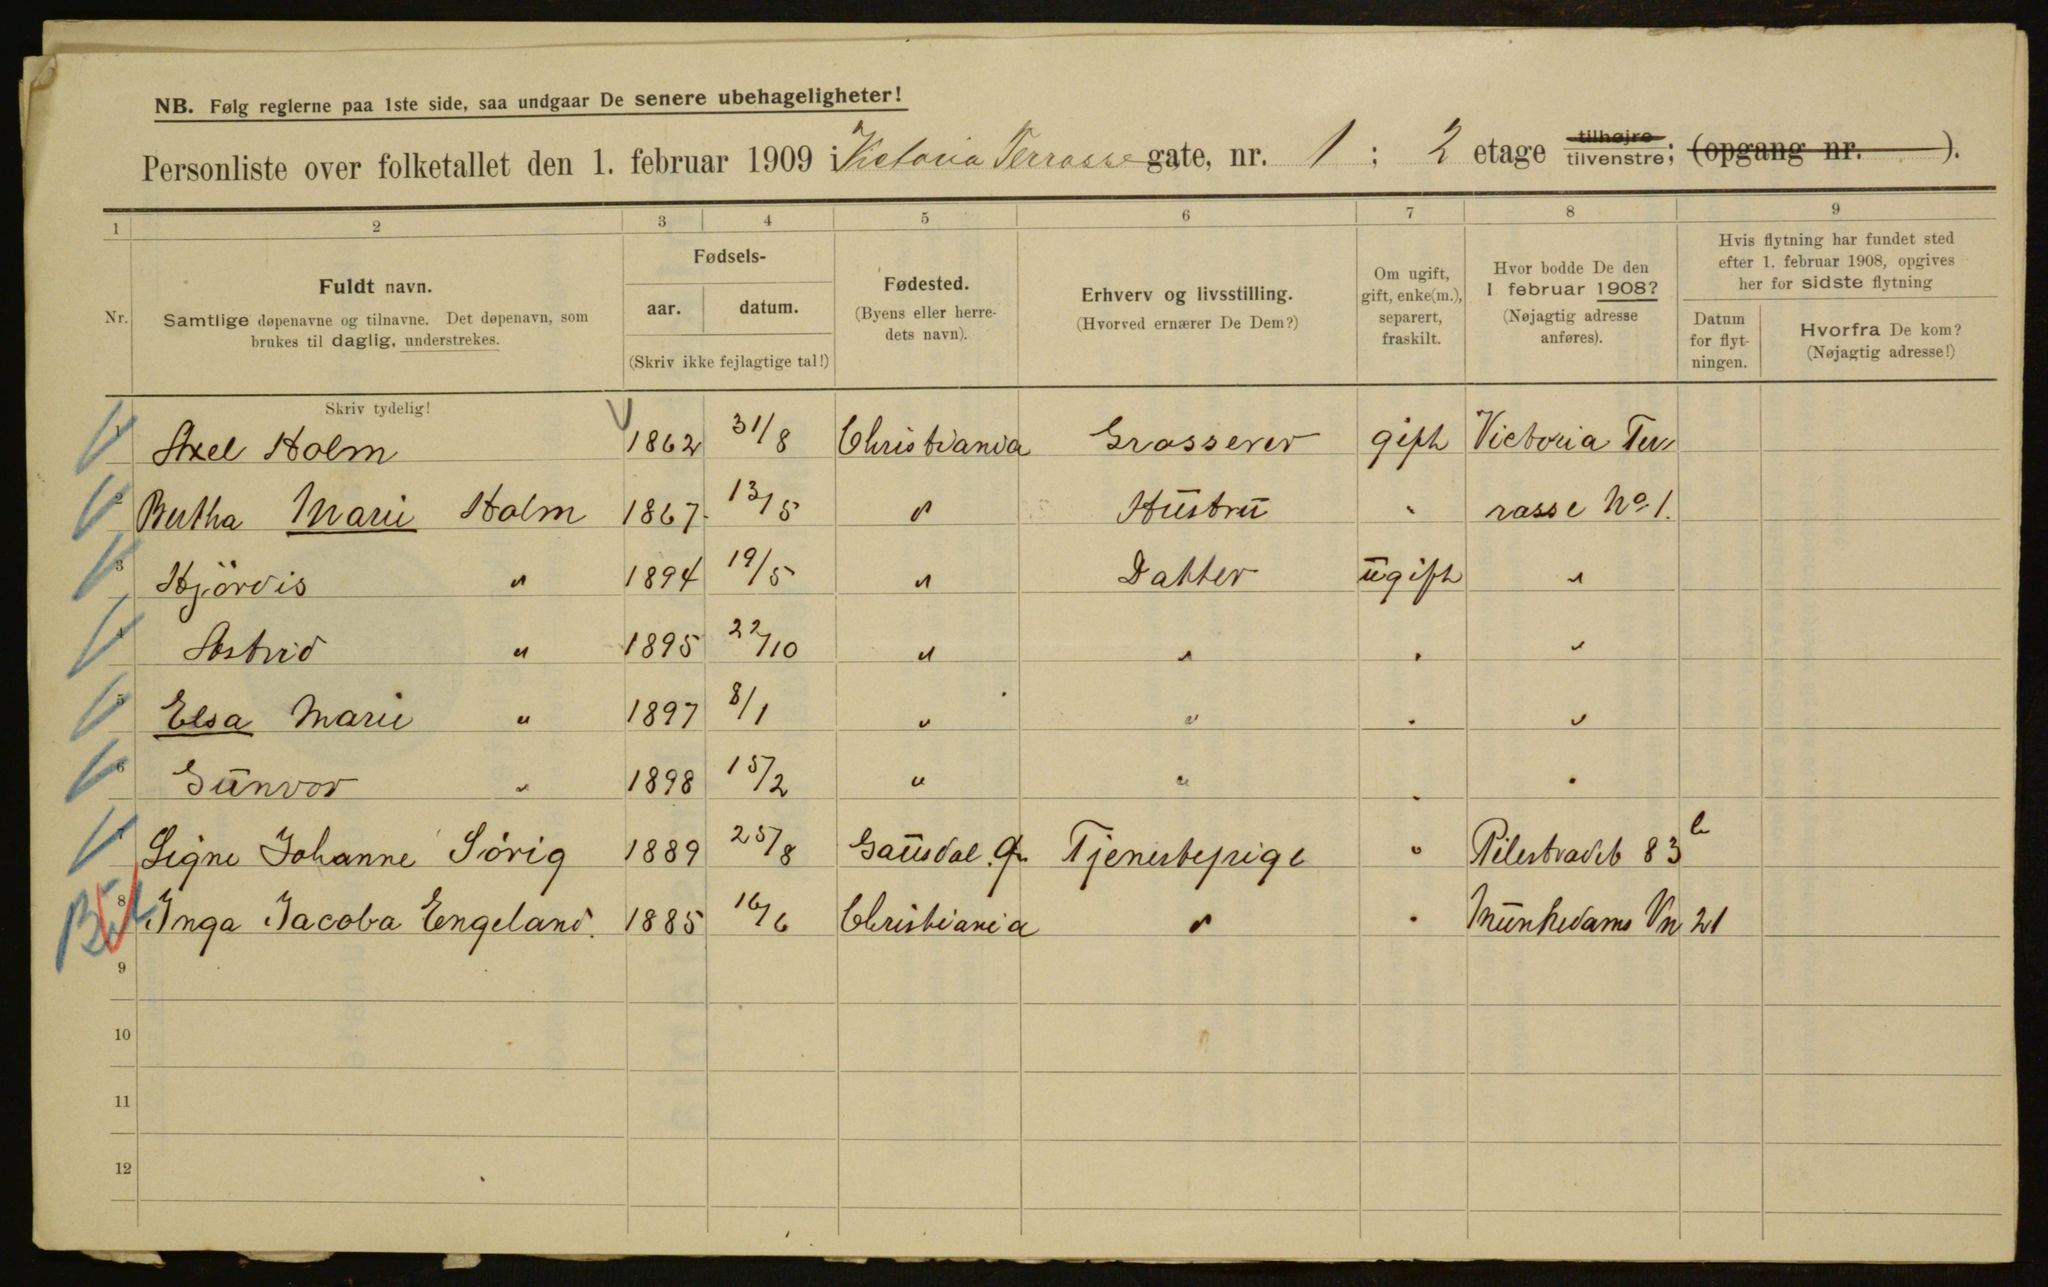 NB. Følg reglerne paa 1ste side, saa undgaar De senere ubehageligheter!
Personliste over folketallet den 1. februar 1909 i Victoria Terrasse gate, nr. 1 ; 2 etage tilhøjre tilvenstre; (opgang nr. ).
1 2 3 4 5 6 7 8 9
Nr.
Fuldt navn.
Samtlige døpenavne og tilnavne. Det døpenavn, som
brukes til daglig, understrekes.
Fødsels-
aar. datum.
(Skriv ikke fejlagtige tal!)
Fødested.
(Byens eller herre-
dets navn).
Erhverv og livsstilling.
(Hvorved ernærer De Dem?)
Om ugift,
gift, enke(m.),
separert,
fraskilt.
Hvor bodde De den
1 februar 1908?
(Nøjagtig adresse
anføres).
Hvis flytning har fundet sted
efter 1. februar 1908, opgives
her for sidste flytning
Datum
for flyt-
ningen.
Hvorfra De kom?
(Nøjagtig adresse!)
Skriv tydelig!
1 Axel Holm 1862 31/8 Christiania Grosserer gift Victoria Ter-
2 Bertha Marie Holm 1867 13/5 " Hustru " rasse No 1.
3 Hjördis " 1894 19/5 " Datter ugift "
4 Astrid " 1895 22/10 " " " "
5 Elsa Marie " 1897 8/1 " " " "
6 Gunvor " 1898 15/2 " " " "
7 Signe Johanne Sörig 1889 25/8 Gausdal. Tjenestepige " Pilestrædet 83 b
8 Inga Jacoba Engeland. 1885 16/6 Christiania " " Munkedams Vn 21
9
10
11
12